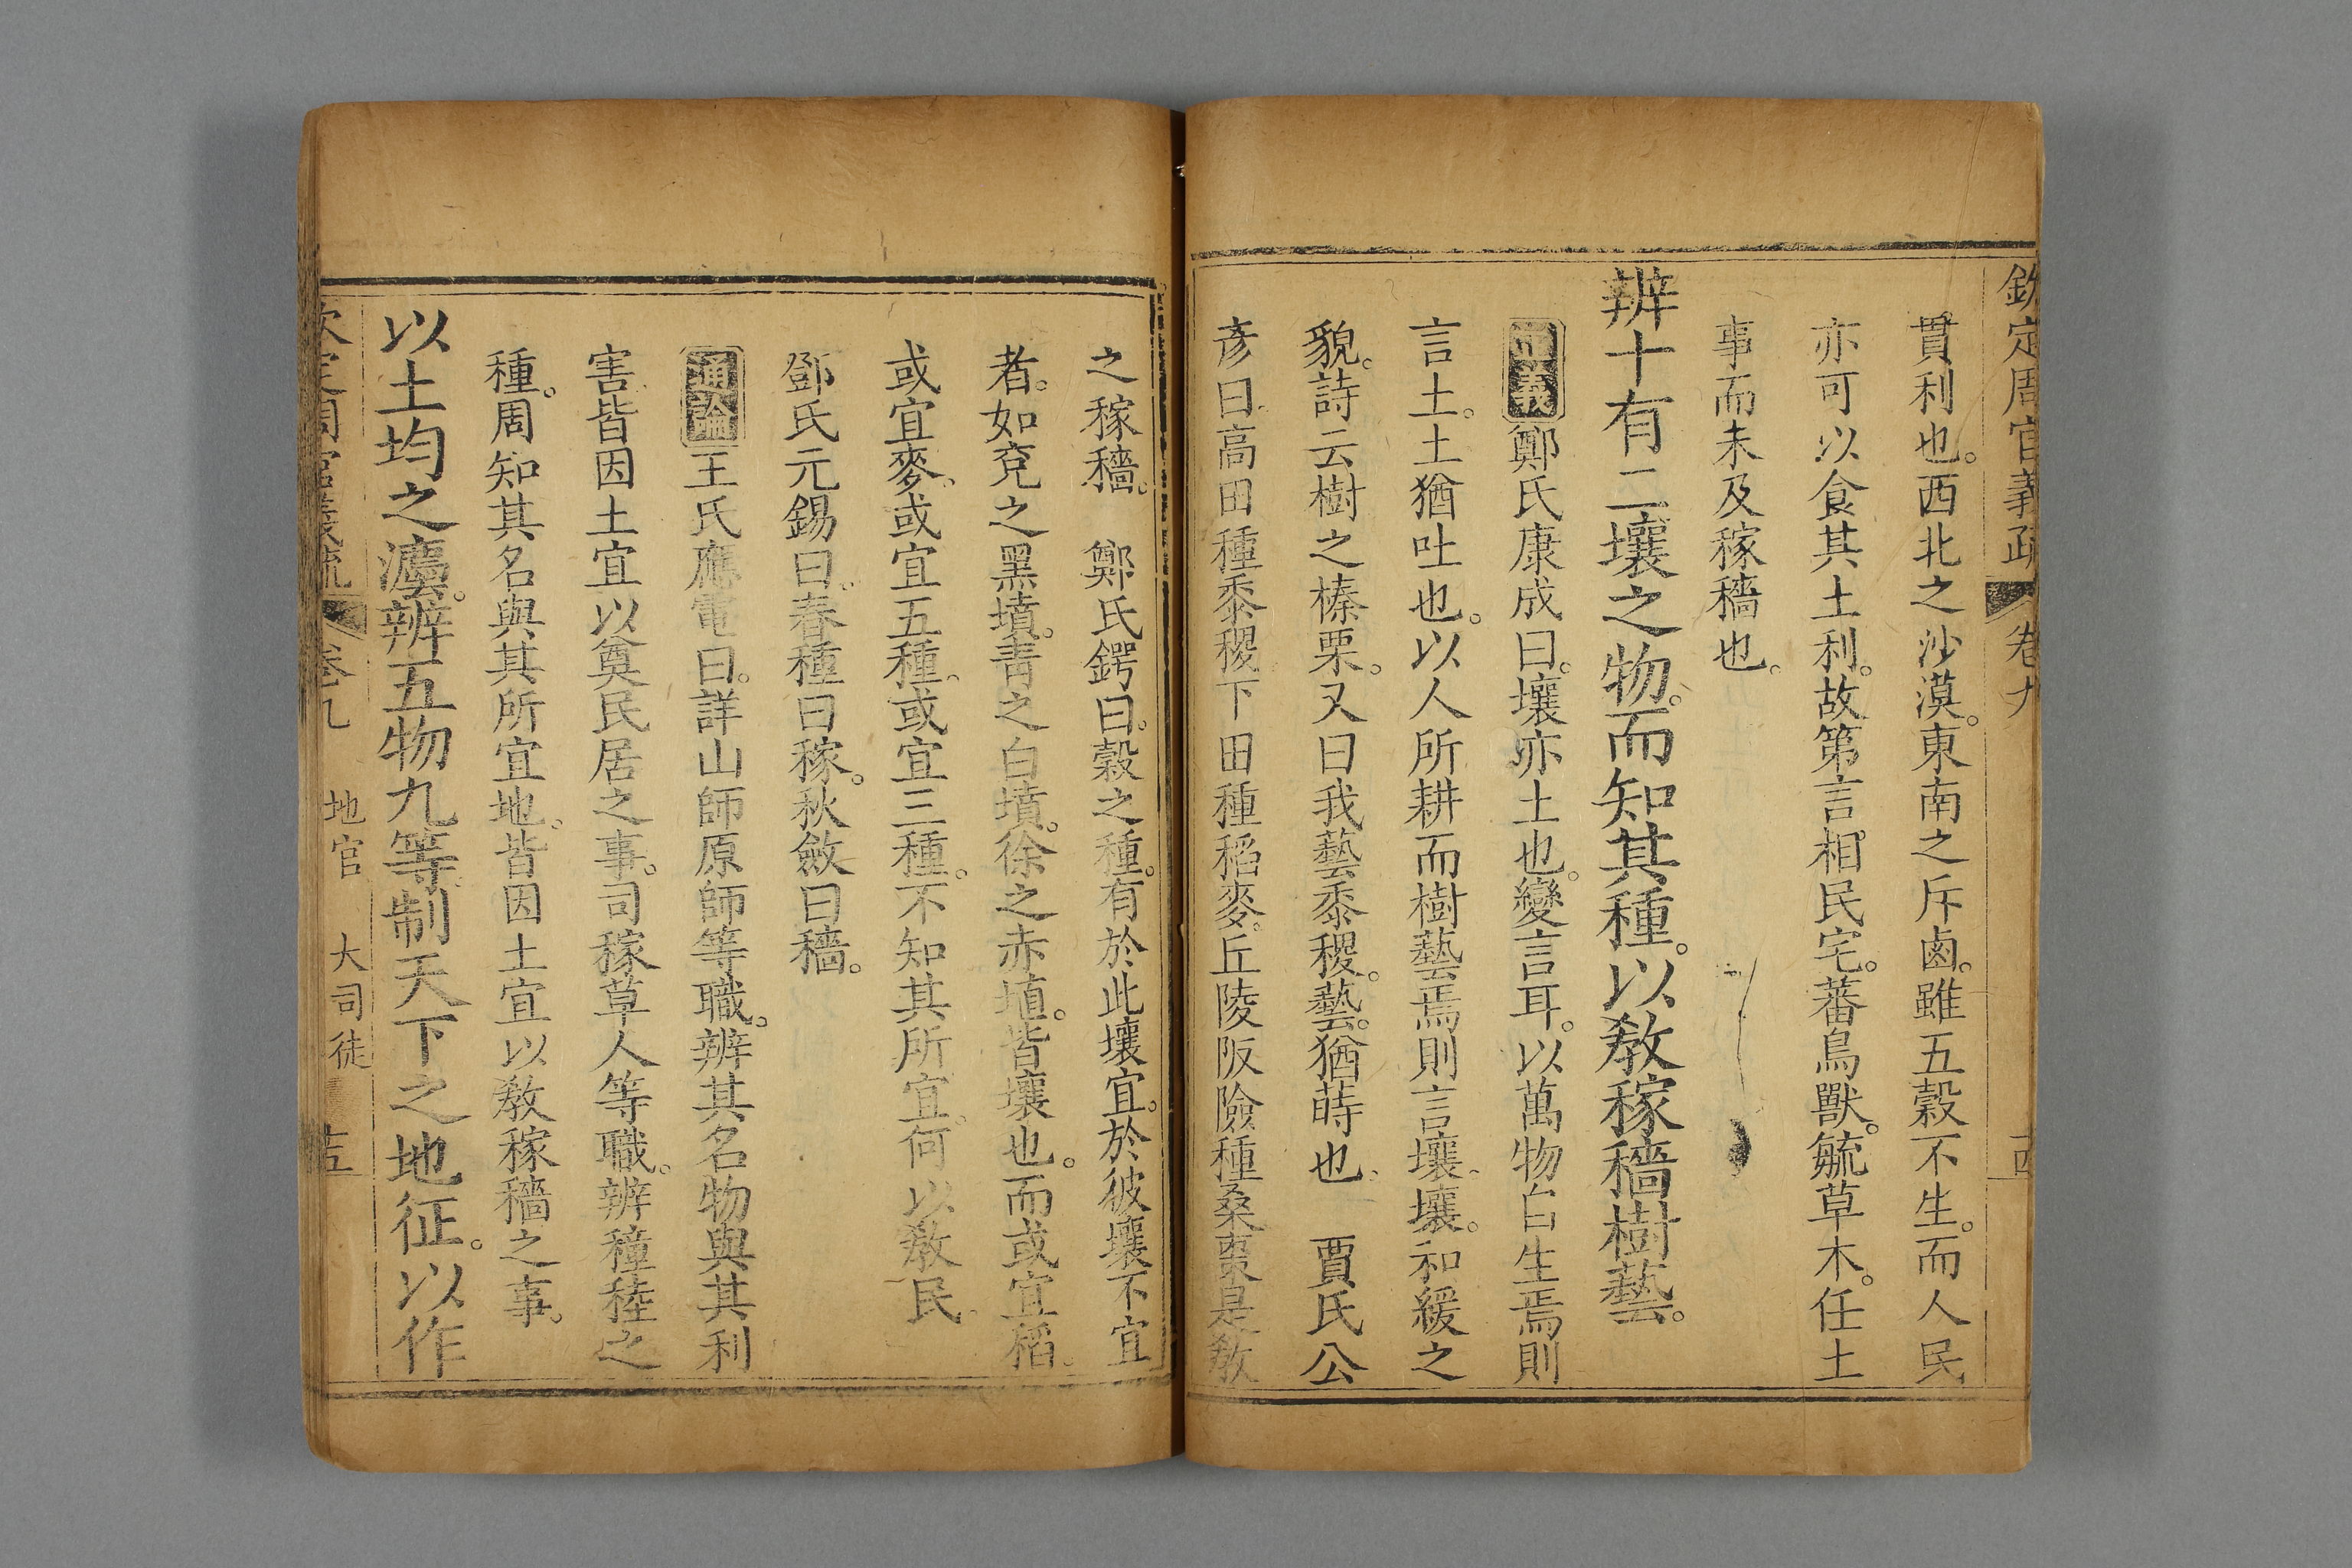 欽定周官義疏 卷九
貫利也。西北之沙漠。東南之斥鹵。雖五穀不生。而人民
亦可以食其土利。故第言相民宅。蕃鳥獸。毓草木。任土
事而未及稼穡也。
辨十有二壤之物。而知其種。以敎稼穡樹藝。
正義鄭氏康成曰。壤亦土也。變言耳。以萬物自生焉則
言土。土猶吐也。以人所耕而樹藝焉則言壤。壤。和緩之
貌。詩云樹之榛栗。又曰我藝黍稷。藝。猶蒔也。 賈氏公
彥曰。高田種黍稷下田種稻麥。丘陵阪險種桑棗是敎
之稼穡。 鄭氏鍔曰。穀之種。有於此壤宜。於彼壤不宜
者。如兗之黑墳。青之白墳。徐之赤埴。皆壤也。而或宜稻。
或宜麥。或宜五種。或宜三種。不知其所宜。何以敎民。
鄧氏元錫曰。春種曰稼。秋斂曰穡。
通論王氏應電曰。詳山師原師等職。辨其名物與其利
害皆因土宜以奠民居之事。司稼草人等職。辨穜稑之
種。周知其名與其所宜地。皆因土宜以敎稼穡之事。
以土均之灋。辨五物九等制天下之地征。以作
欽定周官義疏 卷九 地官 大司徒